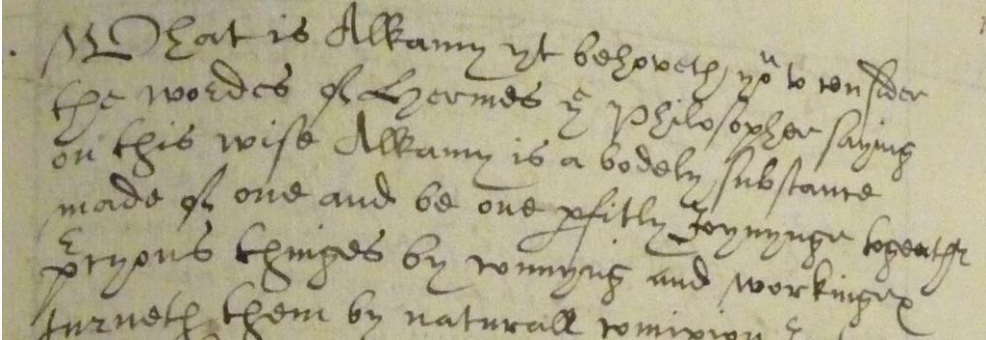 What is Alkamy yt behoveth you to consider
the wordes of Hermes ye Philosopher saying
on this wise Alkamy is a bodely substance
made of one and be one pfitly Joynynge togeather
pcyous thinges by connyng and workinge
turneth them by naturall comixion